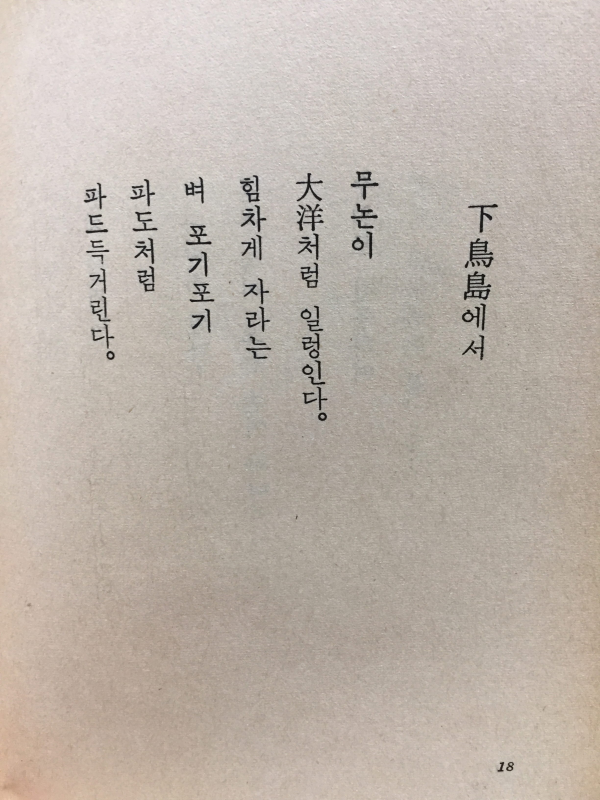 下鳥島에서
무논이
大洋처럼 일렁인다。
힘차게 자라는
벼 포기포기
파도처럼
파드득거린다。
18